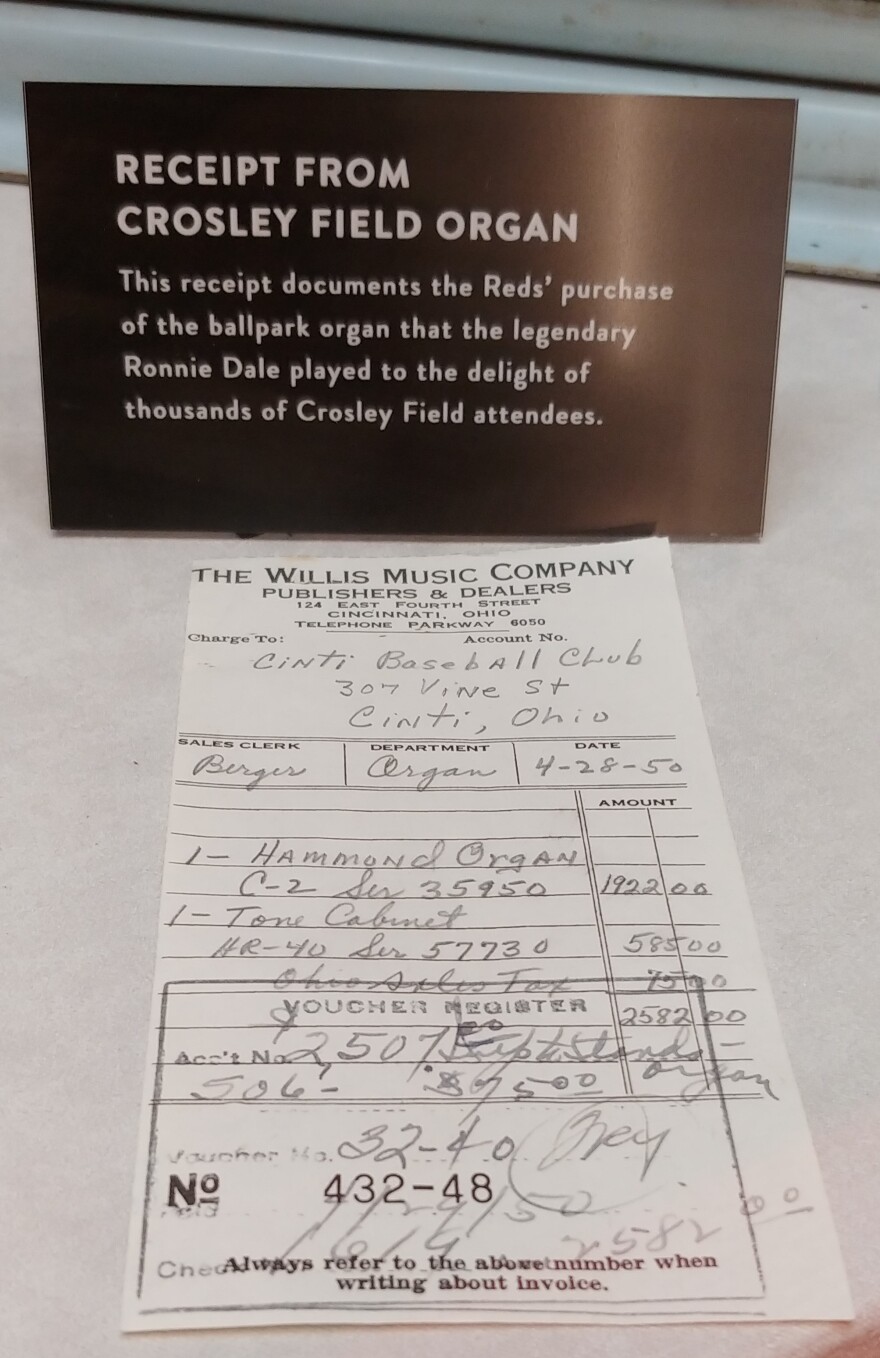 RECEIPT FROM
CROSLEY FIELD ORGAN
This receipt documents the Reds' purchase
of the ballpark organ that the legendary
Ronnie Dale played to the delight of
thousands of Crosley Field attendees.
THE WILLIS MUSIC COMPANY
PUBLISHERS & DEALERS
124 EAST FOURTH STREET
CINCINNATI, OHIO
TELEPHONE PARKWAY 6050
Charge To: Account No.
Cinti Baseball Club
307 Vine St
Cinti, Ohio
SALES CLERK DEPARTMENT DATE
Berger Organ 4-28-50
AMOUNT
1- Hammond Organ
C-2 Ser 35950 1922 00
1- Tone Cabinet
HR-40 Ser 57730 585 00
Ohio Sales Tax 75 00
VOUCHER REGISTER 2582 00
Acc't No. 2507
506- $75 00 Organ
Voucher No. 32-40
No 432-48
2582 00
Always refer to the above number when
writing about invoice.